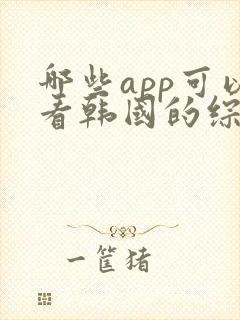 哪些app可以
看韩国的综
一筐猪